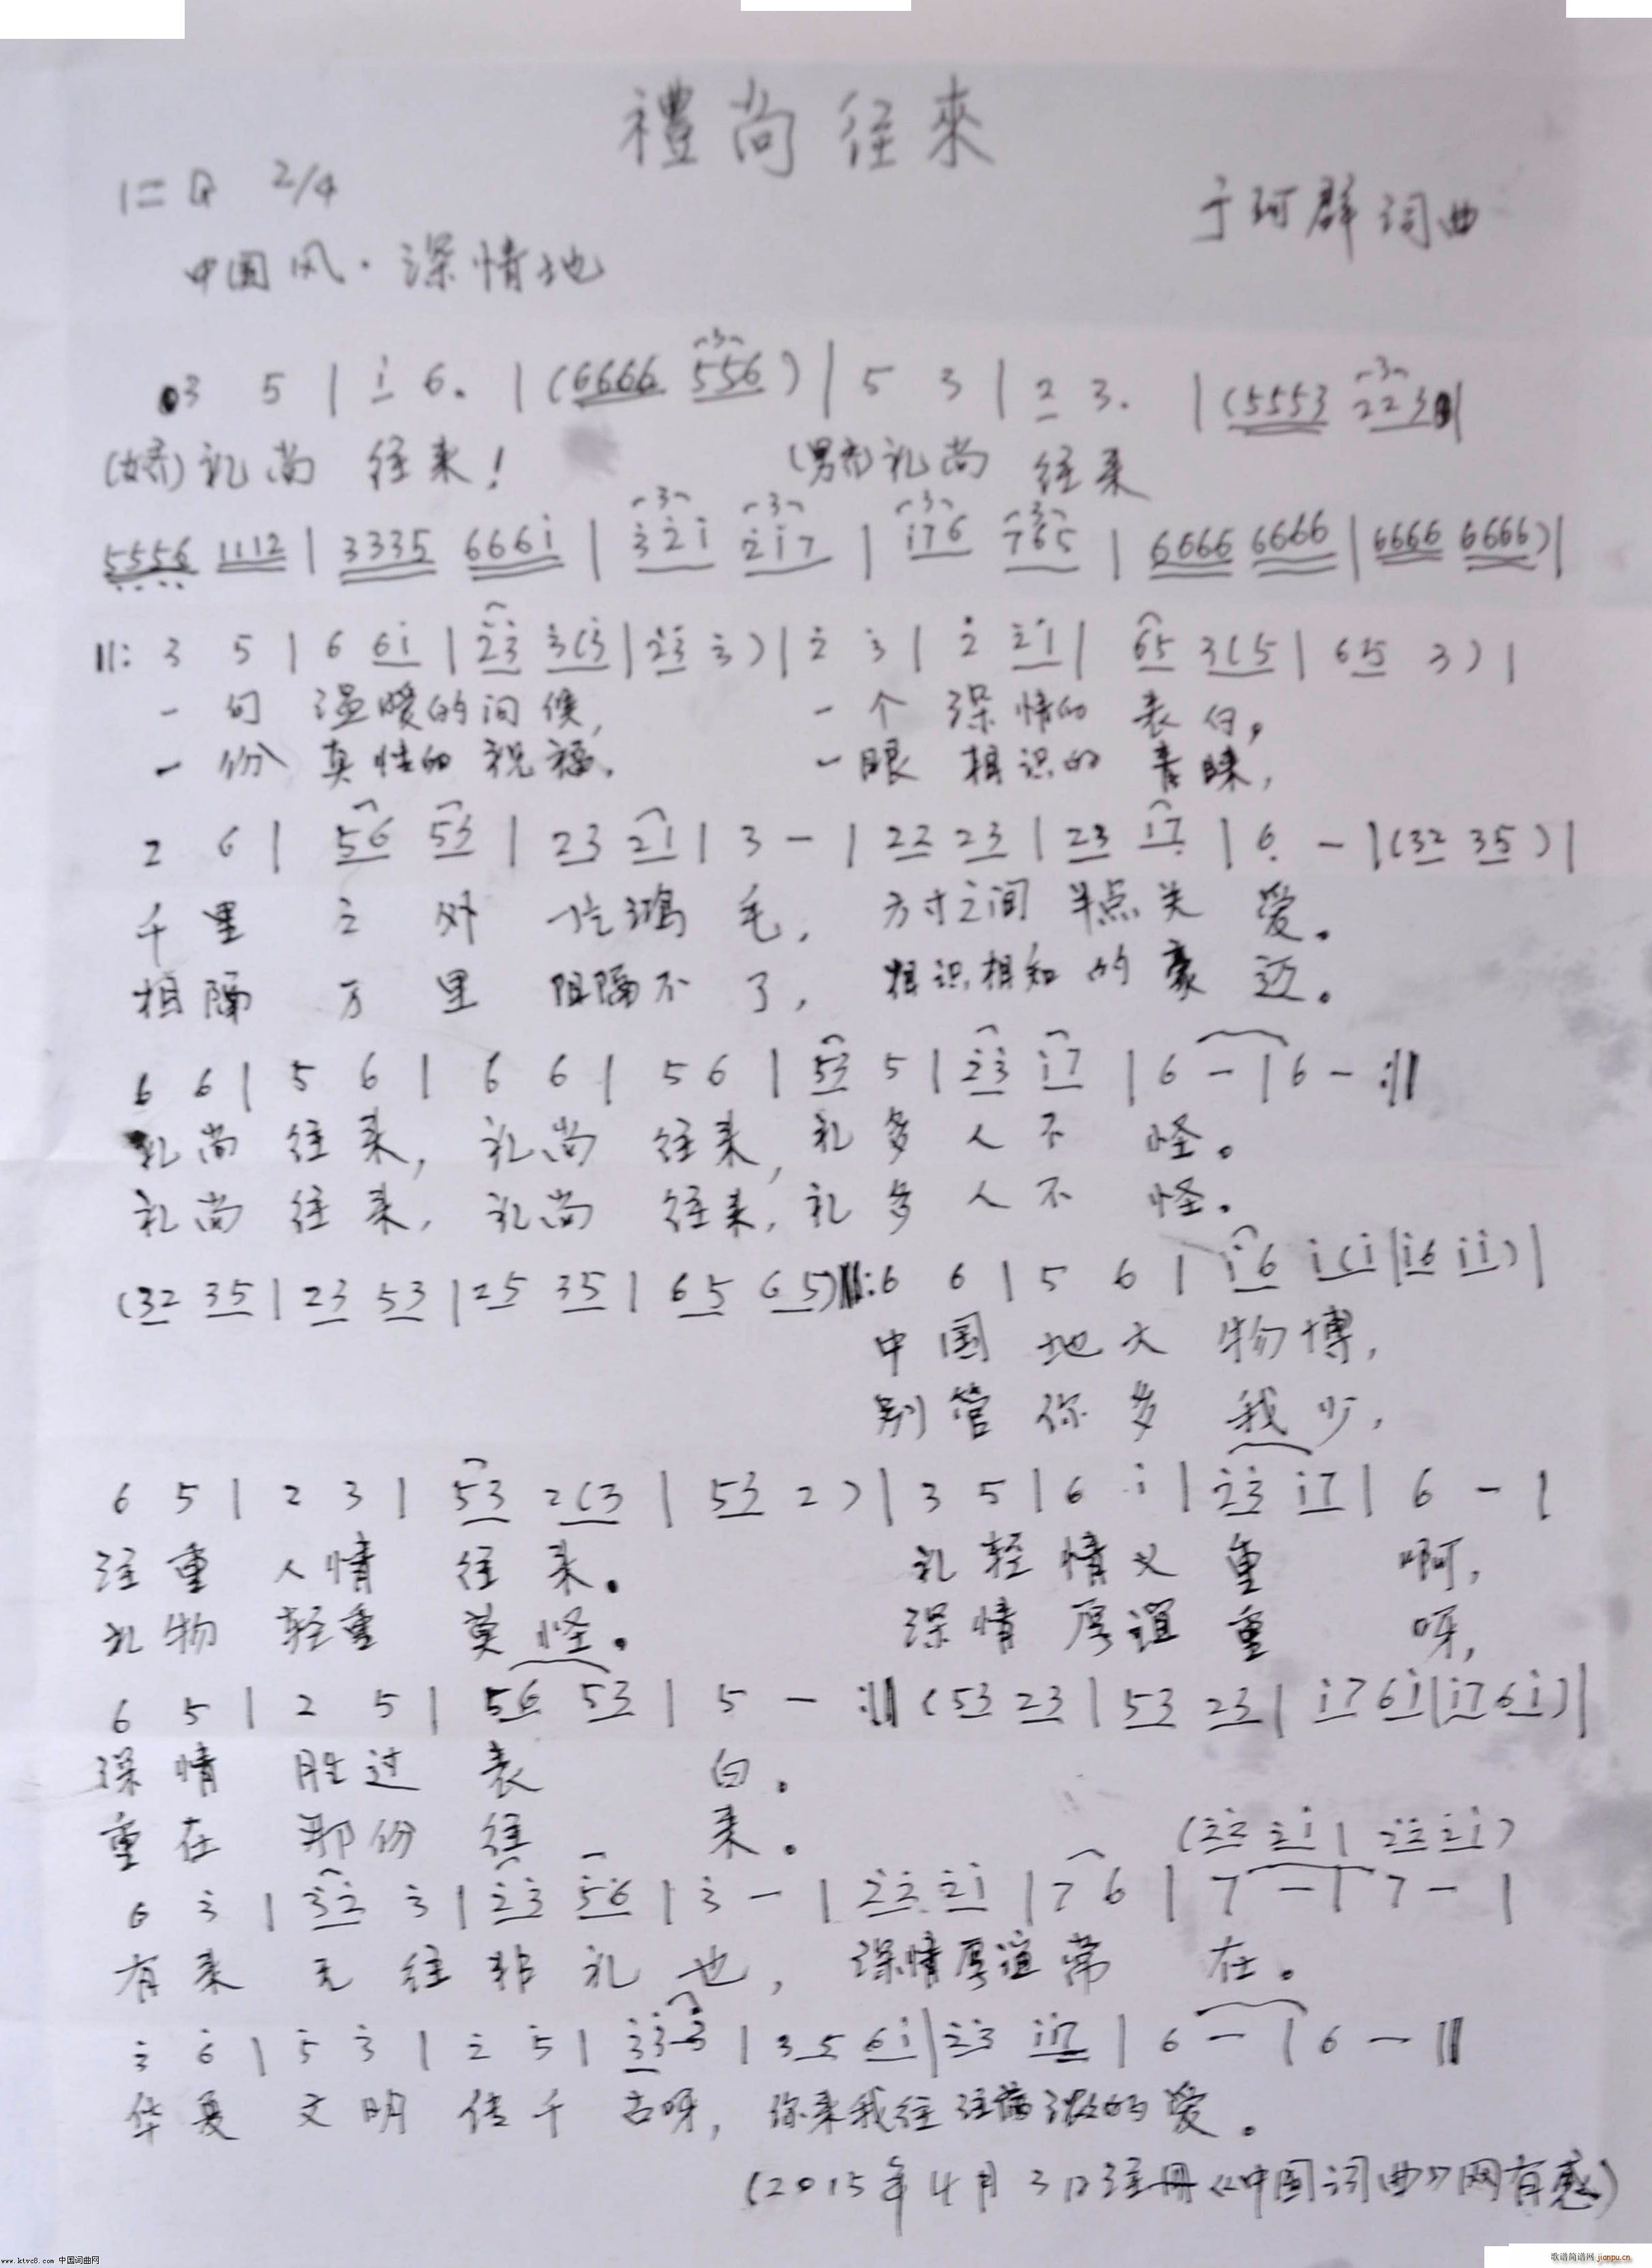 禮尚往來
1=G 2/4
于珂群 词曲
中国风·深情地
3 5 | i 6. | (6666 556) | 5 3 | 2 3. | (5553 223 |
(女齐) 礼尚 往来! (男齐) 礼尚 往来
5556 1112 | 3335 666i | 32i 2i7 | i76 765 | 6666 6666 | 6666 6666) |
||: 3 5 | 6 6i | 23 3(3 | 23 3) | 2 3 | 2 2i | 65 3(5 | 65 3) |
一句 温暖的问候, 一个 深情的 表白。
一份 真情的 祝福. 一眼 相识的 青睐,
2 6 | 56 53 | 23 21 | 3 - | 22 23 | 23 17 | 6 - | (32 35) |
千里 之外 一片鸿毛, 方寸之间 半点关爱。
相隔 万里 阻隔不了, 相识相知的豪迈。
6 6 | 5 6 | 6 6 | 5 6 | 53 5 | 23 i7 | 6 - | 6 - :||
礼尚 往来, 礼尚 往来, 礼多人不怪。
礼尚 往来, 礼尚 往来, 礼多人不怪。
(32 35 | 23 53 | 25 35 | 65 65) ||: 6 6 | 5 6 | i6 i(i | i6 ii) |
中国 地大 物博,
别管 你多 我少,
6 5 | 2 3 | 53 2(3 | 53 2) | 3 5 | 6 i | 23 i7 | 6 - |
注重 人情 往来。 礼轻情义重 啊,
礼物 轻重 莫怪。 深情厚谊重 呀,
6 5 | 2 5 | 56 53 | 5 - :|| (53 23 | 53 23 | i7 6i | i7 6i) |
深情 胜过 表白。
重在 那份 往来。
(22 2i | 22 2i)
6 3 | 32 3 | 23 56 | 3 - | 22 2i | 7 6 | 7 - | 7 - |
有来 无往非礼也, 深情厚谊常在。
3 6 | 5 3 | 2 5 | 33 3 | 35 6i | 23 i7 | 6 - | 6 - ||
华夏 文明 传千古呀, 你来我往 浓的爱。
(2015年4月3日注册《中国词曲》网有感)
www.ktvc8.com 中国词曲网
歌谱简谱网
jianpu.cn